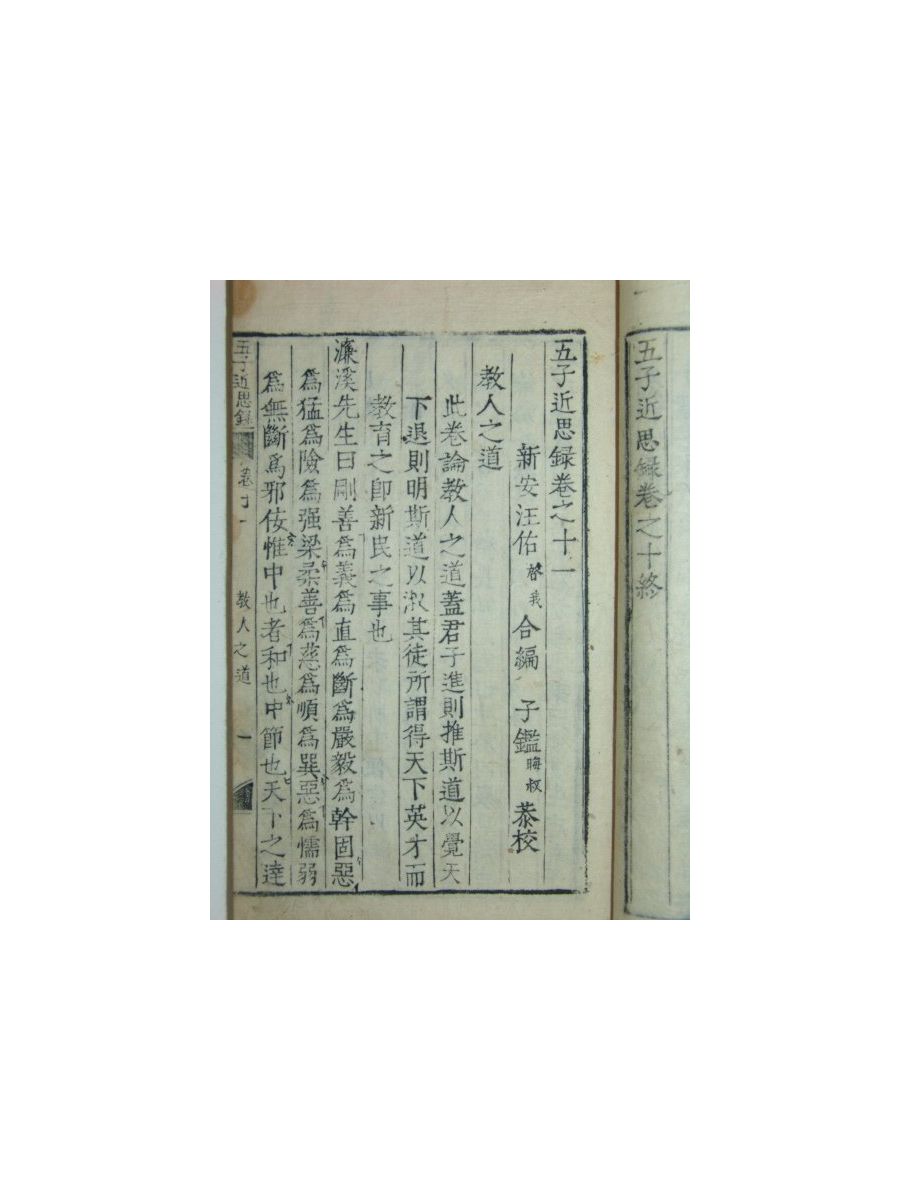 五子近思録卷之十終
五子近思録卷之十一
新安汪佑啓我合編 子鑑晦叔恭校
教人之道
此卷論教人之道蓋君子進則推斯道以覺天
下退則明斯道以淑其徒所謂得天下英才而
教育之即新民之事也
濂溪先生曰剛善爲義爲直爲斷爲嚴毅爲幹固惡
爲猛爲險爲强梁柔善爲慈爲順爲巽惡爲懦弱
爲無斷爲邪佞惟中也者和也中節也天下之達
五子近思録 卷十一 教人之道 一